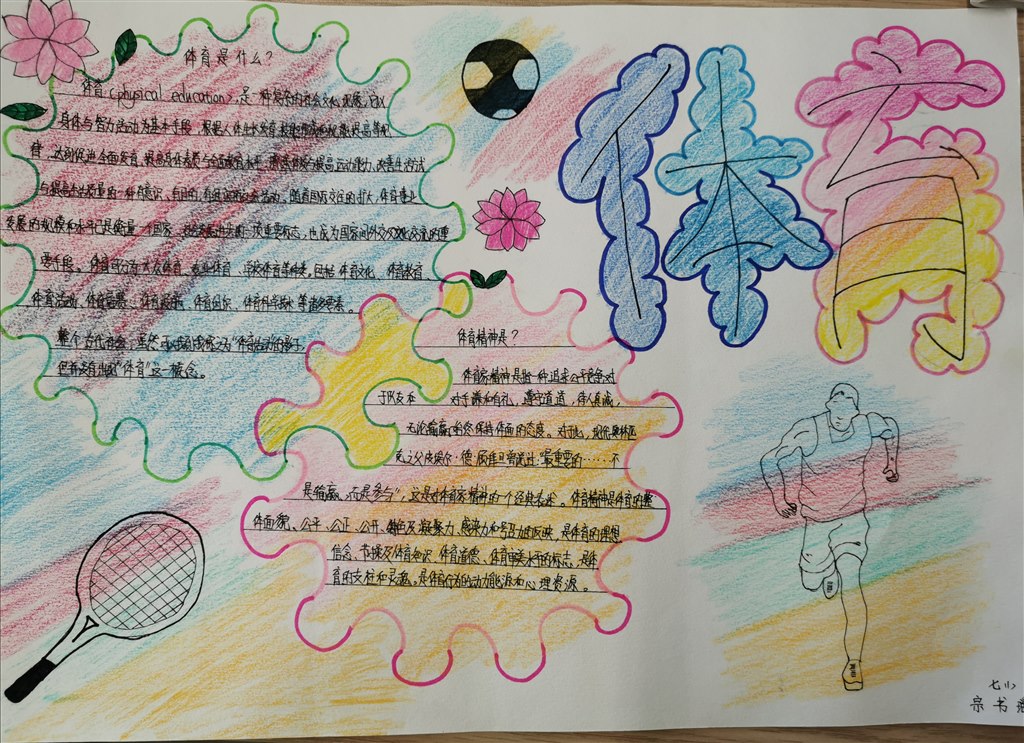 体育
体育是什么?
体育(physical education),是一种复杂的社会文化现象,它以
身体与智力活动为基本手段,根据人体生长发育、技能形成和机能提高等规
律,达到促进全面发育、提高身体素质与全面教育水平、增强体质与提高运动能力、改善生活方式
与提高生活质量的一种有意识、有目的、有组织的社会活动。随着国际交往的扩大,体育事业
发展的规模和水平已是衡量一个国家、社会发展进步的一项重要标志,也成为国家间外交及文化交流的重
要手段。体育可分为大众体育、专业体育、学校体育等种类。包括体育文化、体育教育、
体育活动、体育竞赛、体育设施、体育组织、体育科学技术等诸多要素。
整个古代社会,虽然
但并没有出现“体育”这一概念。
体育精神是?
体育家精神是指一种追求公平竞争,对
于队友 对手谦和有礼,遵守道道,待人真诚,
无论输赢,始终保持体面的态度。对于此,现代奥林匹
克之父皮埃尔·德·顾拜旦曾说过:“最重要的……不
是输赢,而是参与”,这是对体育家精神的一个经典表述。体育精神是体育的整
体面貌、公平、公正、公开、特色及凝聚力、感染力和号召力的反映,是体育的理想
信念、节操及体育知识、体育道德、体育审美水平的标志,是体
育的支柱和灵魂。是体育行为的动力能源和心理资源。
七小
宗书